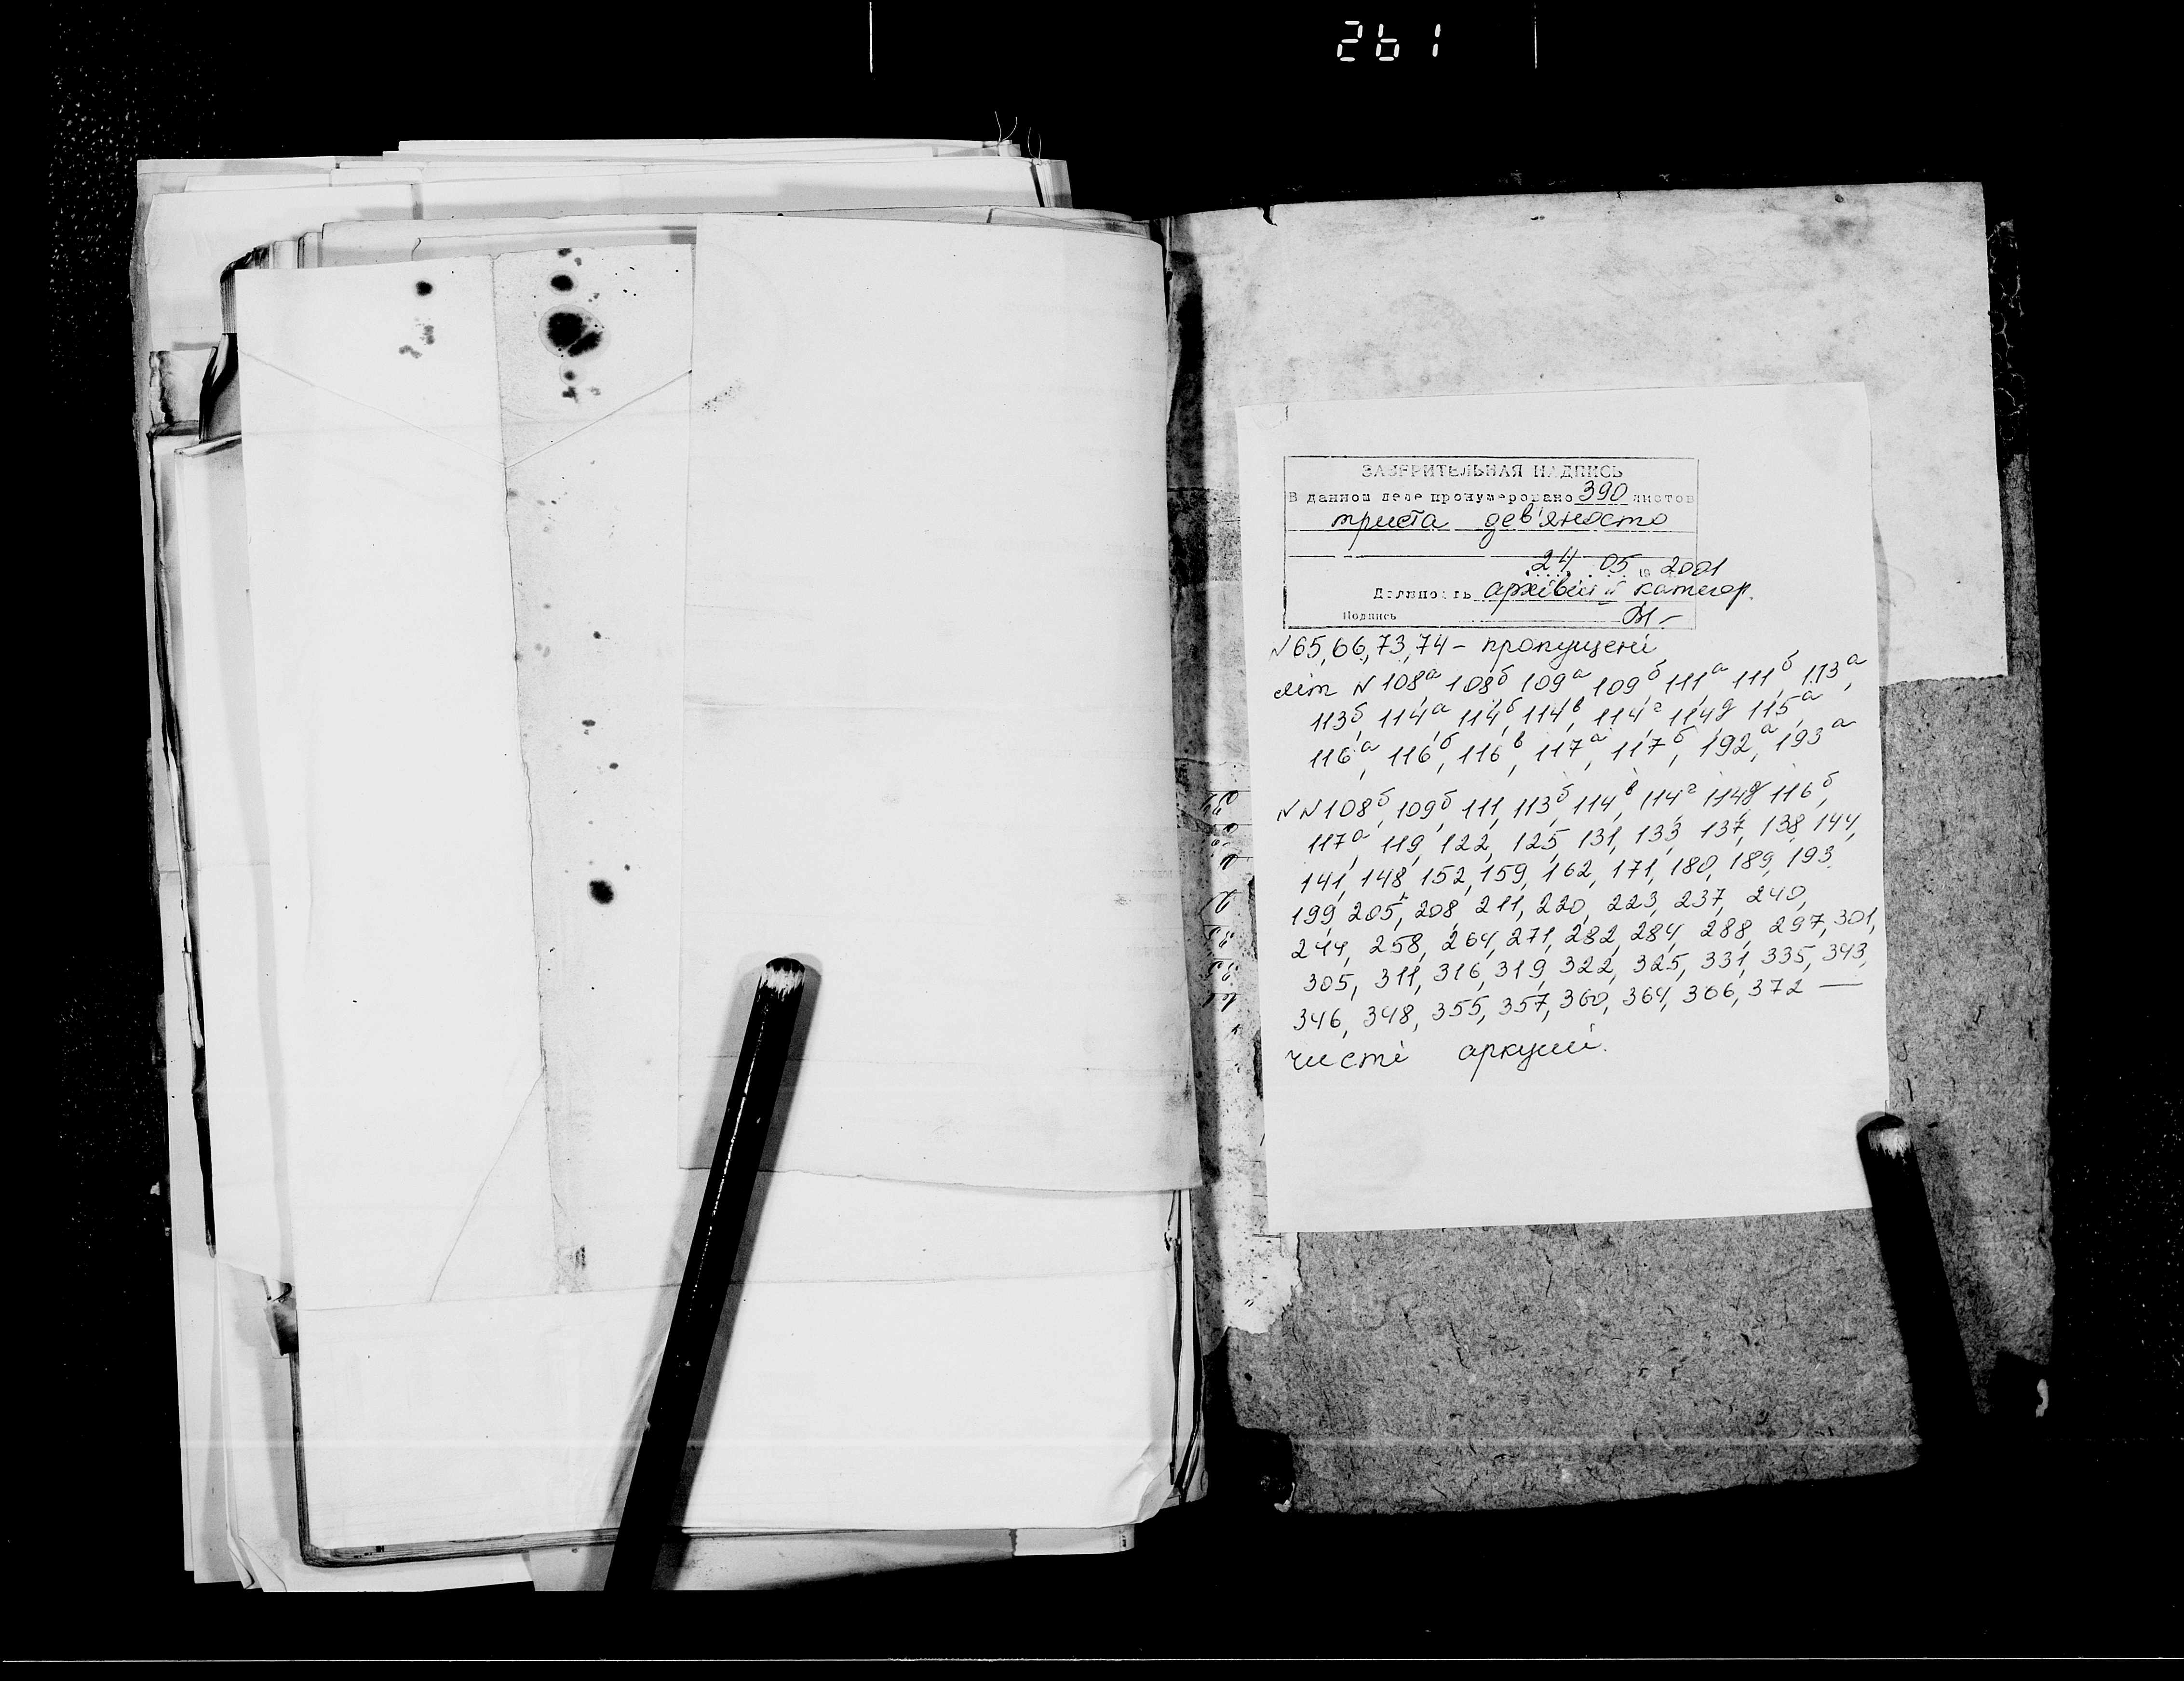 261
ЗАВЕРИТЕЛЬНАЯ НАДПИСЬ
В данном деле пронумеровано 390 листов
триста дев'яносто
24 05 19 2001
Должность архівіст II категор.
Подпись
N 65, 66, 73, 74 – пропущені
літ N 108а 108б 109а 109б 111а 111б 113а,
113б, 114а, 114б, 114в, 114г, 114д 115а,
116а, 116б, 116в, 117а, 117б, 192а, 193а
NN 108б, 109б, 111, 113б, 114в, 114г, 114д 116б,
117а, 119, 122, 125, 131, 133, 137, 138, 144,
141, 148, 152, 159, 162, 171, 180, 189, 193
199, 205, 208, 211, 220, 223, 237, 240,
244, 258, 264, 271, 282, 284, 288, 297, 301,
305, 311, 316, 319, 322, 325, 331, 335, 343,
346, 348, 355, 357, 360, 364, 366, 372 —
чисті аркуші.